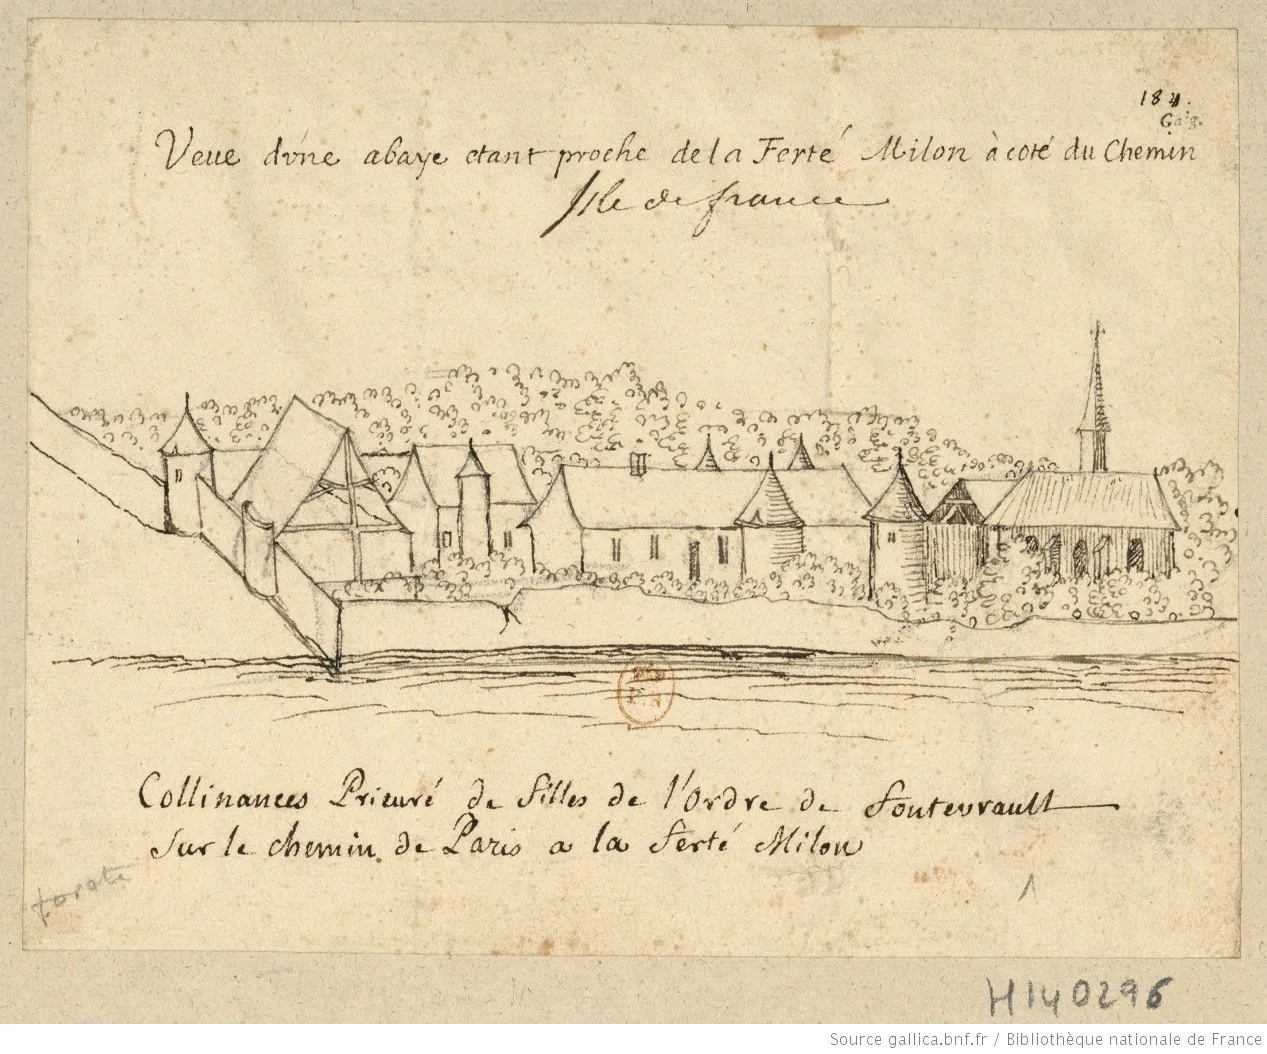 184.
Gaig.
Veue d'vne abaye etant proche de la Ferté Milon à coté du Chemin
Isle de france
Collinances Prieuré de filles de l'Ordre de fontevrault
sur le chemin de Paris a la ferté Milon
H140296
Source gallica.bnf.fr / Bibliothèque nationale de France